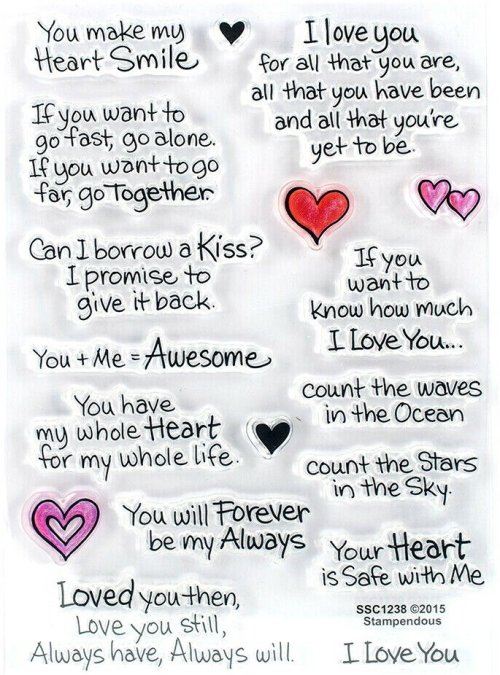 You make my
Heart Smile
I love you
for all that you are,
all that you have been
and all that you're
yet to be.
If you want to
go fast, go alone.
If you want to go
far, go Together.
Can I borrow a Kiss?
I promise to
give it back.
If you
want to
know how much
I Love You...
You + Me = Awesome
count the waves
in the Ocean
You have
my whole Heart
for my whole life.
count the Stars
in the Sky.
You will Forever
be my Always
Your Heart
is Safe with Me
Loved you then,
Love you still,
Always have, Always will.
SSC1238 ©2015
Stampendous
I Love You